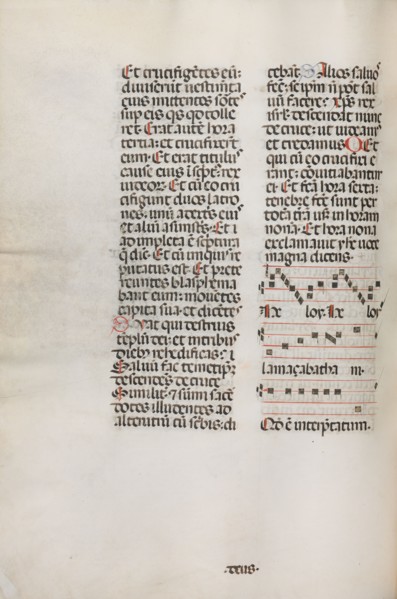 Et crucifigẽtes eũ:
diuiserũt uestimẽta
eius mittentes sorte
sup eis qͥs qͥd tolle
ret. Erat autẽ hora
tertia: et crucifixerũt
eum. Et erat titulus
cause eius ĩscptͥ: rex
iudeoꝝ. Et cũ eo cru
cifigunt duos latro
nes. unũ a dextris eiꝰ
et aliũ a sinistris. Et
adimpleta ẽ scptura
q̃ dic̃. Et cũ iniquis re
putatus est. Et prete
reuntes blasphema
bant eum: mouẽtes
capita sua et dicẽtes
Uah qui destruis
tẽplũ dei: et in tribus
diebꝰ reedificas:
saluũ fac temetipm̃
descendẽs de cruce.
Similiter ⁊ sũmi sacer
dotes illudentes ad
alterutrũ cũ scͥbis: di
cebãt. Alios saluos
fec̃: seipm̃ nõ põt sal
uũ facere. xp̃s rex
isrl̃: descendat nunc
de cruce: ut uideamꝰ
et credamus. Et
qui cũ eo crucifixi e
rant: conuitiabantur
ei. Et fc̃a hora sexta:
tenebre fc̃e sunt per
totã trã usqꝫ in horam
nonã. Et hora nona
exclamauit yhs uoce
magna dicens.
loy. loy
lamaçabatha ni.
Qd̃ ẽ interp̃tatum.
·deus·